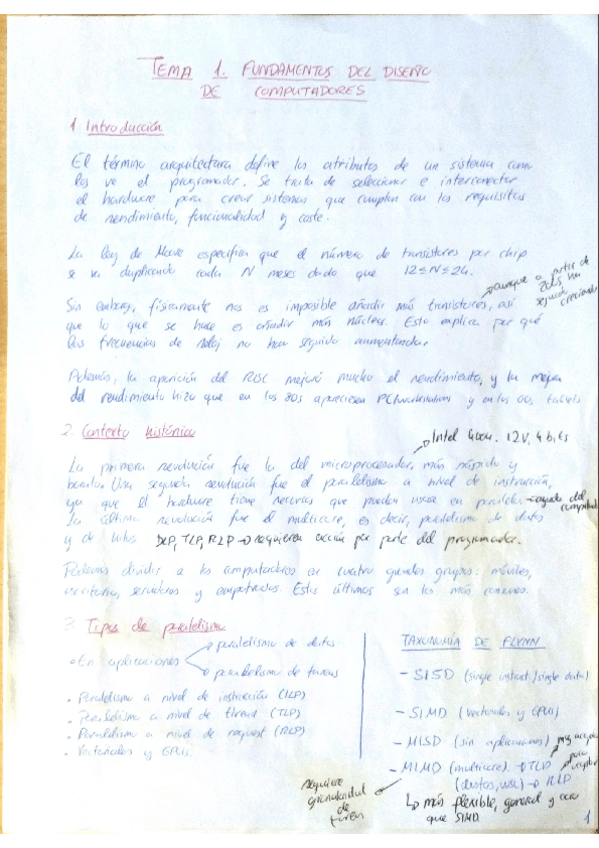 TEMA 1. FUNDAMENTOS DEL DISEÑO
DE COMPUTADORES
1 Introducción
El término arquitectura define los atributos de un sistema como
los ve el programador. Se trata de seleccionar e interconectar
el hardware para crear sistemas que cumplan con los requisitos
de rendimiento, funcionalidad y coste.
La ley de Moore especifica que el número de transistores por chip
se va duplicando cada N meses dado que 12≤N≤24.
aunque a partir de
2015 han
seguido creciendo
Sin embargo, físicamente nos es imposible añadir más transistores, así
que lo que se hace es añadir más núcleos. Esto explica por qué
las frecuencias de reloj no han seguido aumentando.
Además, la aparición del RISC mejoró mucho el rendimiento, y la mejora
del rendimiento hizo que en los 80s apareciesen PC/workstations y en los 00s, tablets
2. Contexto histórico
Intel 12V, 4 bits
La primera revolución fue la del microprocesador, más rápido y
barato. Una segunda revolución fue el paralelismo a nivel de instrucción,
ya que el hardware tiene recursos que pueden usarse en paralelo → ayuda del
compilador
La última revolución fue el multicore, es decir, paralelismo de datos
y de hilos DLP, TLP, RLP → requieren acción por parte del programador.
Podemos dividir a los computadores en cuatro grandes grupos: móviles,
escritorio, servidores y empotrados. Estos últimos son los más comunes.
3. Tipos de paralelismo
• En aplicaciones
paralelismo de datos
paralelismo de tareas
• Paralelismo a nivel de instrucción (ILP)
• Paralelismo a nivel de thread (TLP)
• Paralelismo a nivel de request (RLP)
• Vectoriales y GPUs.
TAXONOMÍA DE FLYNN
- SISD (single instruct./single data)
- SIMD (vectoriales y GPUs)
- MISD (sin aplicaciones)
- MIMD (multicore) → TLP
→ RLP
↳ más flexible, general y
que SIMD
requiere
granularidad
de
tareas
1